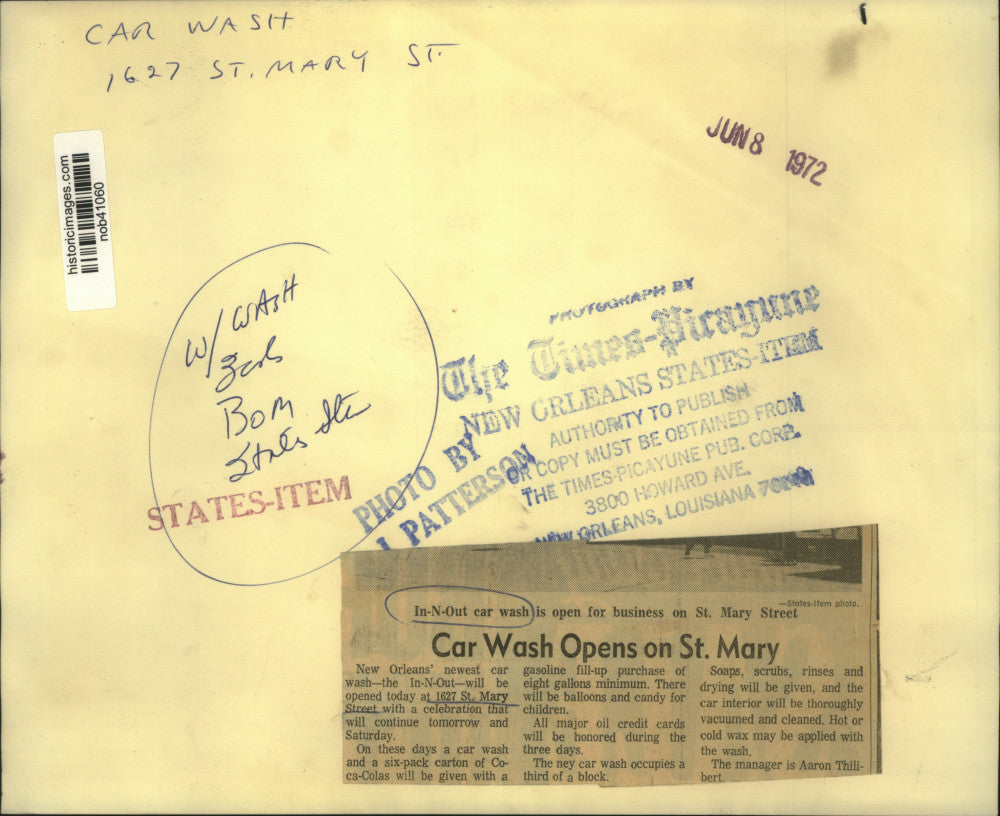 CAR WASH
1627 ST. MARY ST.
JUN 8 1972
historicimages.com
nob41060
W/ WASH
BOM
States Item
STATES-ITEM
PHOTO BY
J PATTERSON
PHOTOGRAPH BY
The Times-Picayune
NEW ORLEANS STATES-ITEM
AUTHORITY TO PUBLISH
OR COPY MUST BE OBTAINED FROM
THE TIMES-PICAYUNE PUB. CORP.
3800 HOWARD AVE.
NEW ORLEANS, LOUISIANA
—States-Item photo.
In-N-Out car wash is open for business on St. Mary Street
Car Wash Opens on St. Mary
New Orleans' newest car
wash—the In-N-Out—will be
opened today at 1627 St. Mary
Street with a celebration that
will continue tomorrow and
Saturday.
On these days a car wash
and a six-pack carton of Co-
ca-Colas will be given with a
gasoline fill-up purchase of
eight gallons minimum. There
will be balloons and candy for
children.
All major oil credit cards
will be honored during the
three days.
The ney car wash occupies a
third of a block.
Soaps, scrubs, rinses and
drying will be given, and the
car interior will be thoroughly
vacuumed and cleaned. Hot or
cold wax may be applied with
the wash.
The manager is Aaron Thili-
bert.